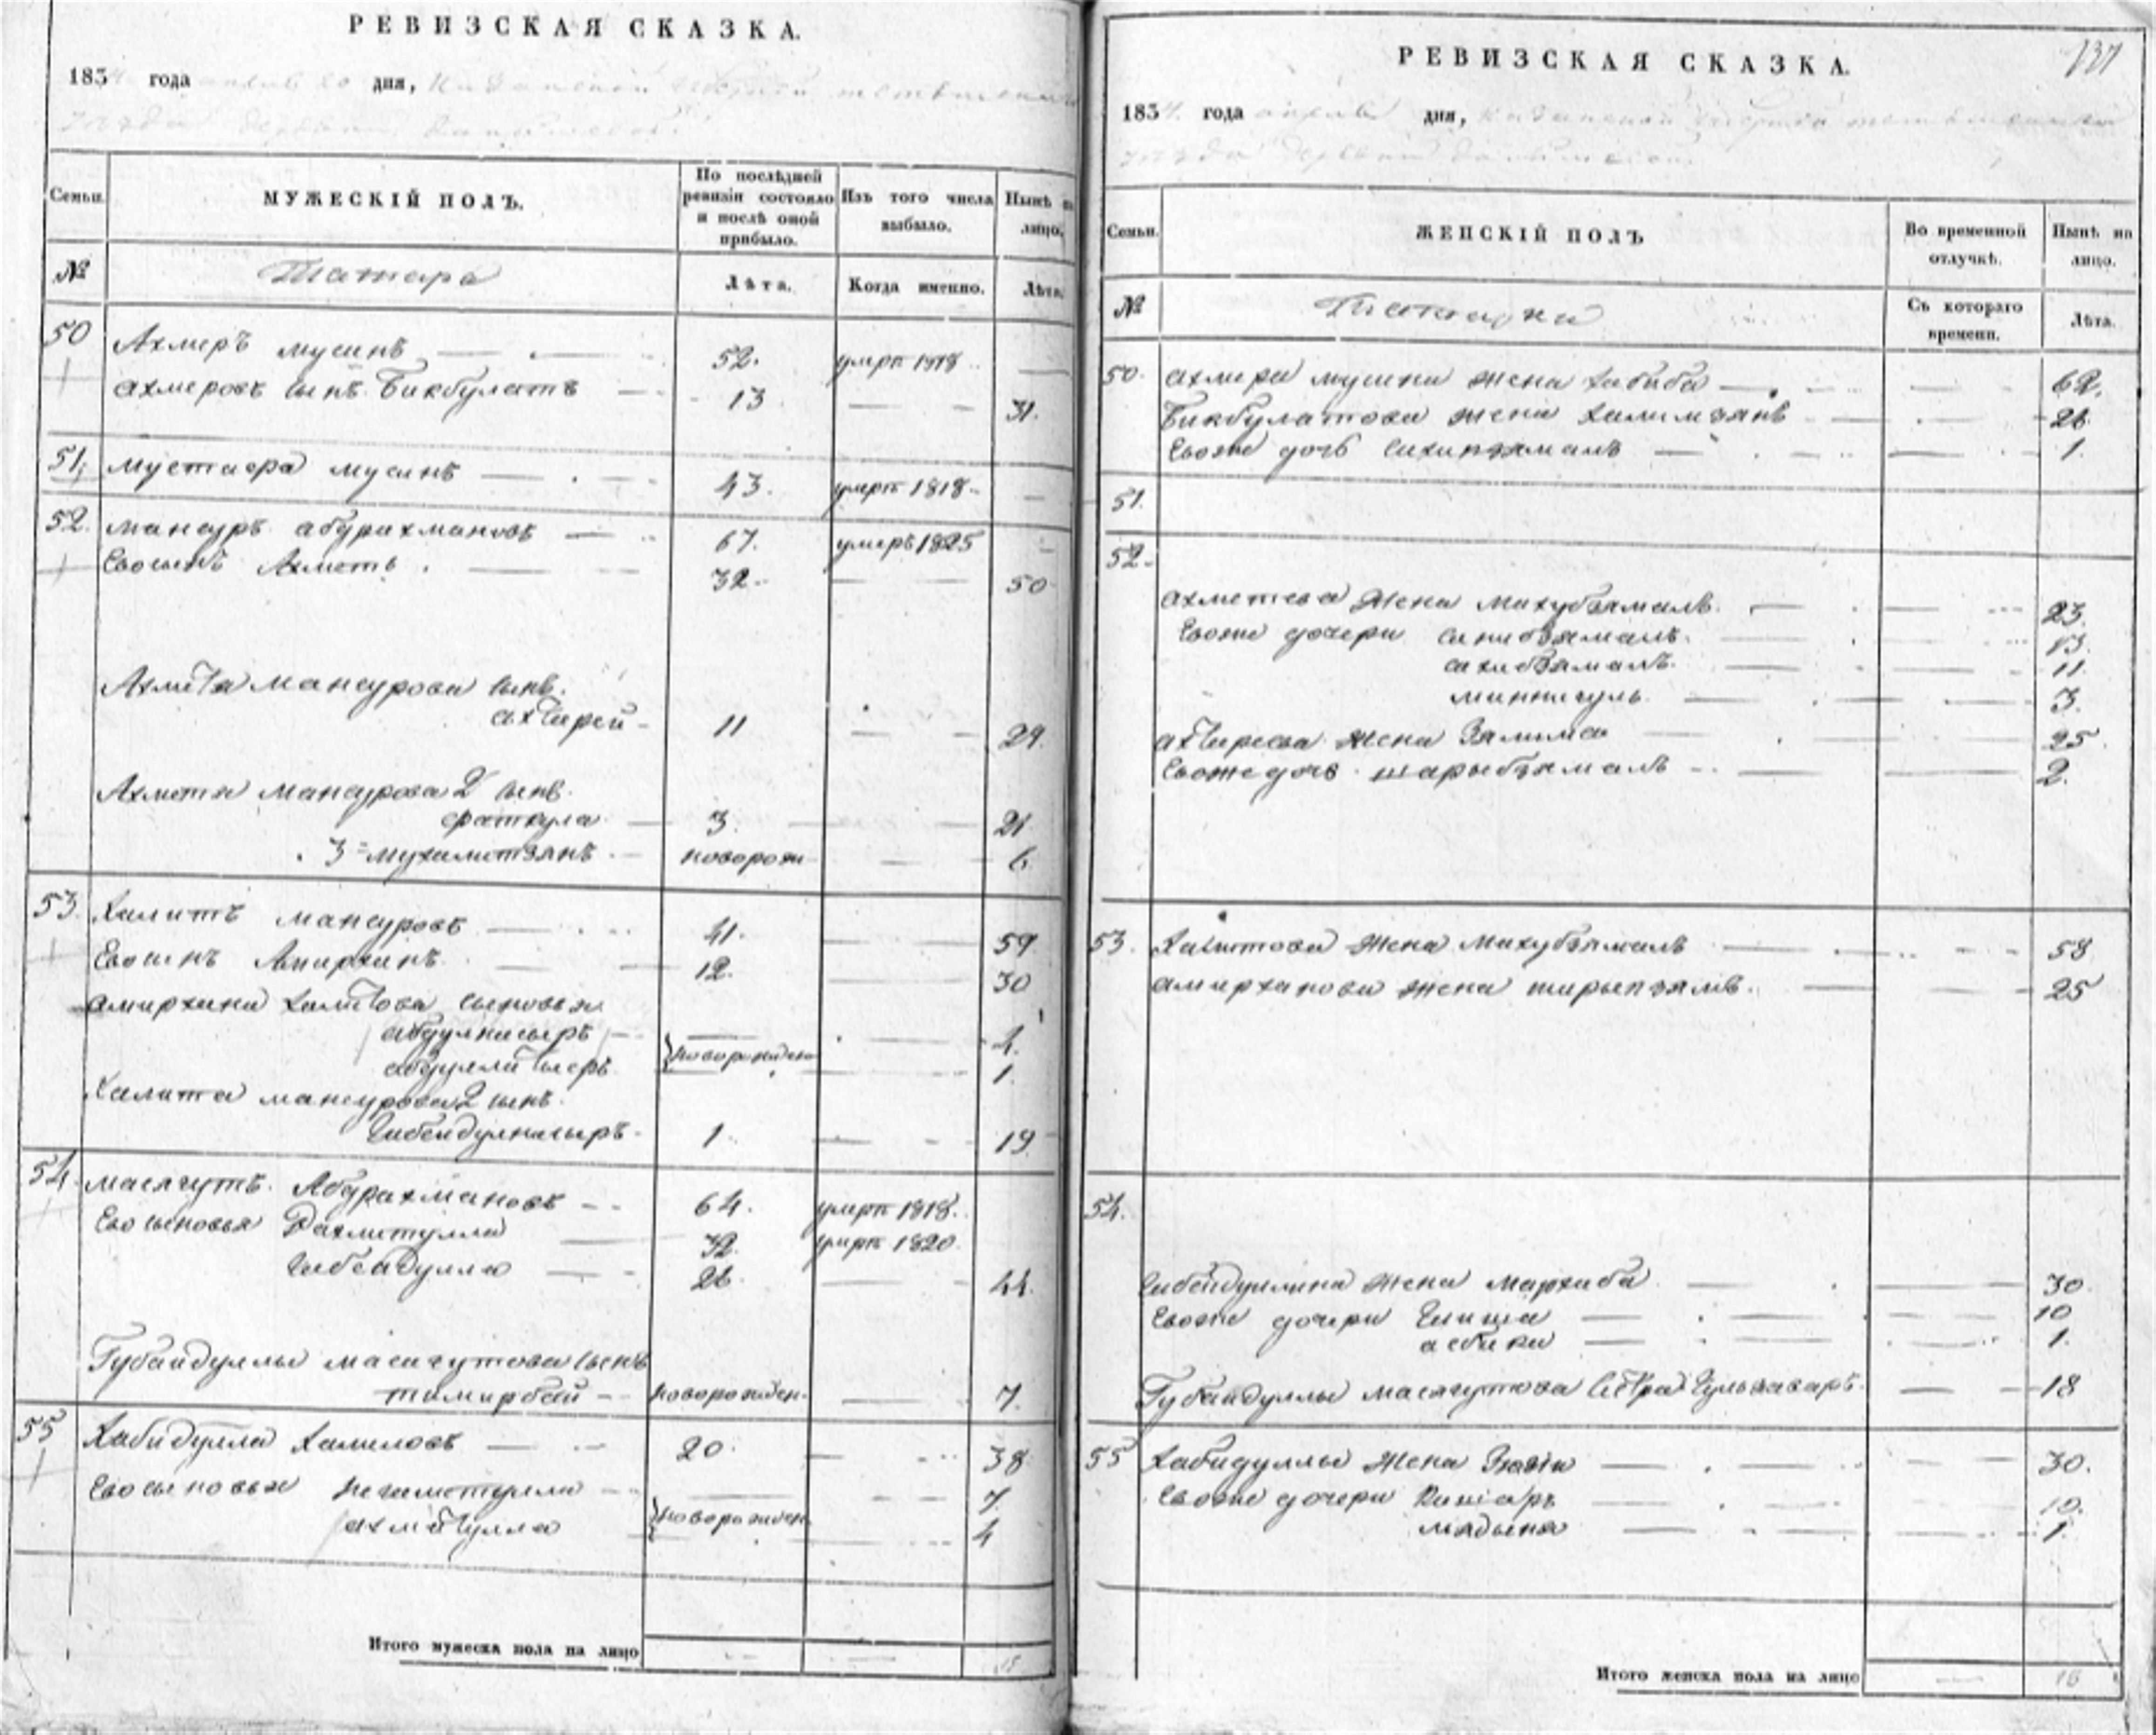 РЕВИЗСКАЯ СКАЗКА.
1834 года апреля 20 дня, Казанской Губернии
уезда деревни
Семьи.
МУЖЕСКІЙ ПОЛЪ.
По послѣдней ревизіи состояло и послѣ оной прибыло.
Изъ того числа выбыло.
Нынѣ на лицо.
№
Татара
Лѣта.
Когда именно.
Лѣта.
50 Ахмеръ Мусинъ 52. умеръ 1818
Ахмеровъ сынъ Бикбулатъ 13 31.
51. Мустафа Мусинъ 43. умеръ 1818
52. Мансуръ Абдрахмановъ 67. умеръ 1825
Ево сынъ Ахметъ 32. 50
Ахмета Мансурова сынъ
11 29.
Ахмета Мансурова 2 сынъ
3. 21
3 Мухаметзянъ новорожд 6
53. Халитъ Мансуровъ 41. 59
Ево сынъ Амирханъ 12. 30
Амирхана Халитова сыновья
Абдулнасыръ 4.
новорожден
1.
Халита Мансурова 2 сынъ
Гибейдулнасыръ 1 19
54. Масягутъ Абдрахмановъ 64. умеръ 1818.
Ево сыновья Рахметулла 32. умеръ 1820.
Гибейдулла 26. 44.
Губайдуллы Масягутова сынъ
Тимирбай новорожден. 7.
55 Хабидулла Халиловъ 20. 38
Ево сыновья Негаметулла 7.
новорожден.
4
Итого мужеска пола на лицо
РЕВИЗСКАЯ СКАЗКА.
137
1834 года апреля дня, Казанской Губернии
уезда деревни
Семьи.
ЖЕНСКІЙ ПОЛЪ
Во временной отлучкѣ.
Нынѣ на лицо.
№
Съ котораго времени.
Лѣта.
50. Ахмера Мусина жена Хабиба 62.
Бикбулатова жена Халимзянъ 26.
Ево же дочь 1.
51.
52.
Ахметева жена Махубзямалъ 23.
Ево же дочери Санибзямалъ. 13.
Сахибзямалъ. 11
Миннигуль 3.
жена Зялима 25
Ево же дочь Шарыбзямалъ 2.
53. Халитова жена Махубзямалъ 58
Амирханова жена 25
54.
Гибейдуллина жена Мархаба 30
Ево же дочери 10
1.
Губайдуллы Масягутова сестра Гульзаваръ 18
55 Хабидуллы жена 30.
Ево же дочери 10.
Мядына 1
Итого женска пола на лицо 16